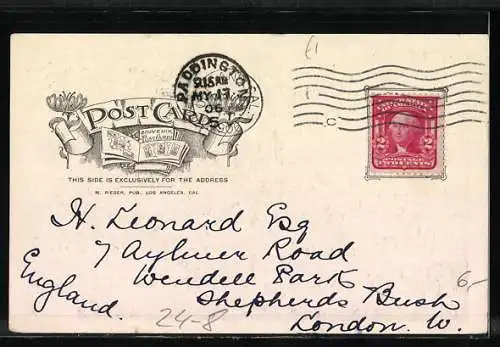 PADDINGTON
9.15 AM
MY 17
06
POST CARD
SOUVENIR
THIS SIDE IS EXCLUSIVELY FOR THE ADDRESS
M. RIEDER, PUB., LOS ANGELES, CAL.
2 2
POSTAGE
TWO CENTS
H. Leonard Esq
7 Aylmer Road
Wendell Park
Shepherds Bush
London. W.
England.
24-8
6,-